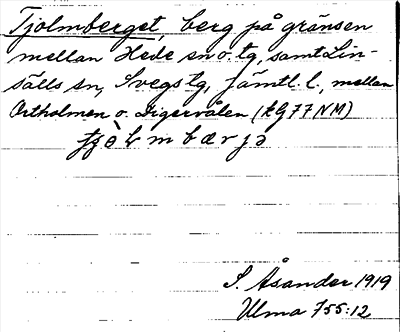 Tjolmberget, berg på gränsen
mellan Hede sn o. tg, samt Lin-
sälls sn, Svegs tg, Jämtl. l., mellan
Ortholmen o. Digervålen (kG 77 NM)
S. Åsander 1919
Ulma 755:12